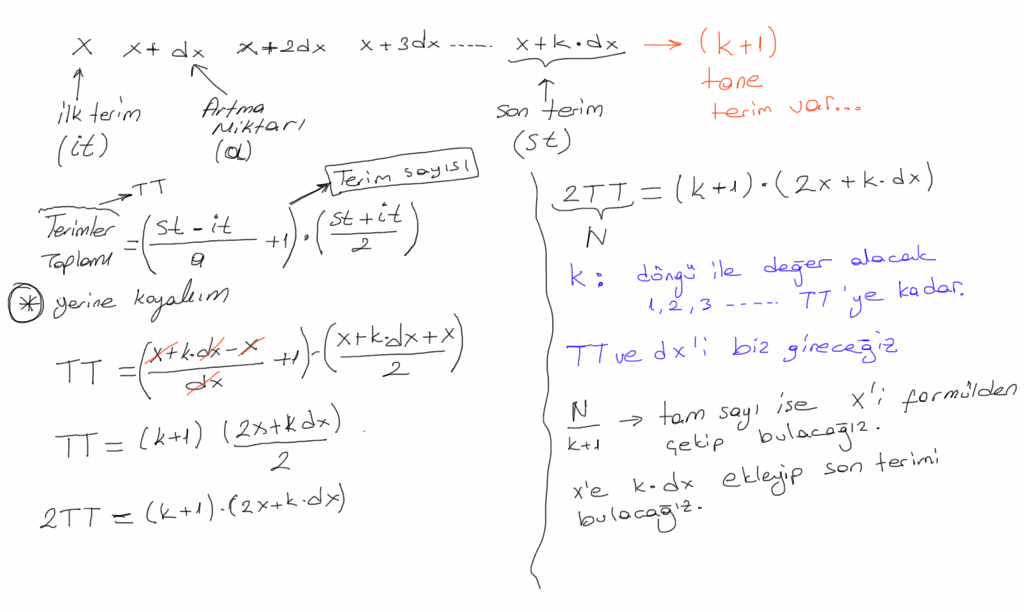 x x+dx x+2dx x+3dx ...... x+k·dx → (k+1)
tane
terim var...
ilk terim
(it)
Artma
Miktarı
(a)
son terim
(st)
Terimler
Toplamı
→ TT
= (st - it / a + 1) · (st + it / 2)
Terim sayısı
* yerine koyalım
TT = (x+k·dx-x / dx + 1) · (x+k·dx+x / 2)
TT = (k+1) (2x+kdx) / 2
2TT = (k+1)·(2x+k·dx)
2TT = (k+1)·(2x+k·dx)
N
k: döngü ile değer alacak
1, 2, 3 ------ TT'ye kadar.
TT ve dx'i biz gireceğiz
N / k+1 → tam sayı ise x'i formülden
çekip bulacağız.
x'e k·dx ekleyip son terimi
bulacağız.